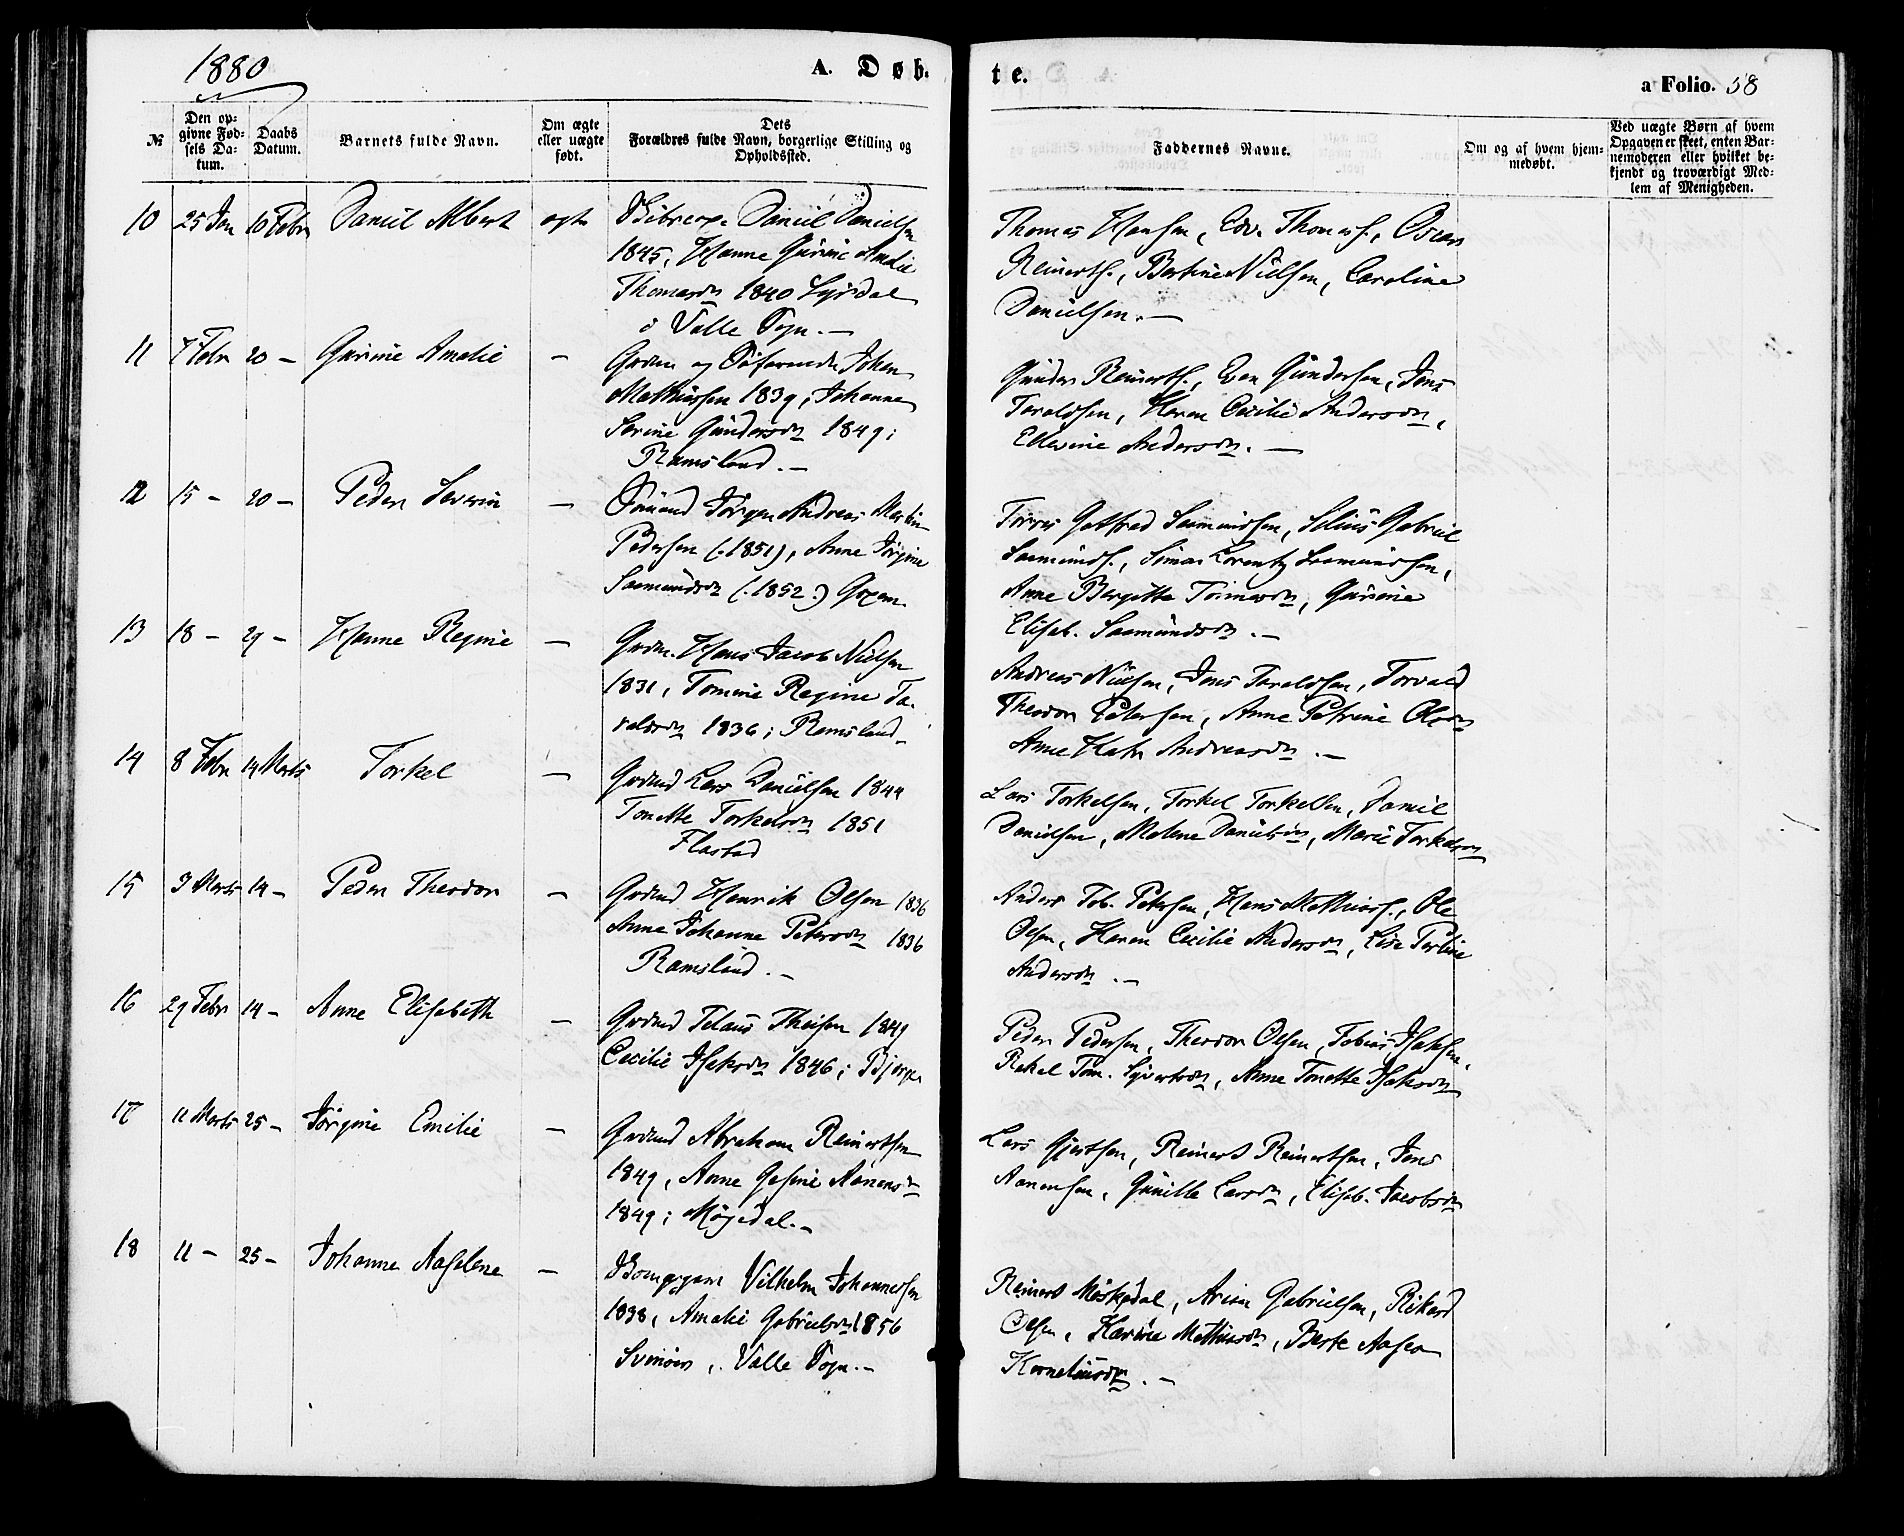 1880
A. Døb-
te.
a Folio. 58
№
Den op-
givne Fød-
sels Da-
tum.
Daabs
Datum.
Barnets fulde Navn.
Om ægte
eller uægte
født.
Dets
Forældres fulde Navn, borgerlige Stilling og
Opholdssted.
Faddernes Navne.
Om og af hvem hjem-
medøbt.
Ved uægte Børn af hvem
Opgaven er skeet, enten Bar-
nemoderen eller hvilket be-
kjendt og troværdigt Med-
lem af Menigheden.
10 25 Jan 10 Febr Daniel Albert ægte Daniel Danielsen
1845, Hanne Gurine Amalie
Thomasdtr 1840
i Valle Sogn. —
Thomas Hansen, Edv. Thomass., Oscar
Reinerts., Bertine Nielsen, Caroline
Danielsen. —
11 7 Febr 20 — Gurine Amalie — Grdm. og Søfarende Johan
Mathiassen 1839, Johanne
Serine Gundersdtr 1849;
Ramsland. —
Gunder Reinerts., Even Gundersen, Jens
Taraldsen, Karen Cecilie Andersdtr,
Ellevine Andersdtr. —
12 15 — 20 — Peder Severin — Sømand Jørgen Andreas Martin
Pedersen (:1851), Anne Jørgine
Saamundsdtr (:1852:)
Gotfred Saamundsen, Gabriel
Saamunds., Simon Lorentz Saamundsen,
Anne Bergitte Gurine
Elisab. Saamundsdtr. —
13 18 — 29 — Hanne Regine — Grdm. Hans Jacob Nielsen
1831, Tomine Regine Ta-
raldsdtr 1836; Ramsland —
Andreas Nilsen, Jens Taraldsen, Torvald
Theodor Petersen, Anne Petrine Olsdtr
Anne Kath. Andreasdtr. —
14 8 Febr 14 Marts Torkel — Grdmd Lars Danielsen 1844
Tonette Torkelsdtr 1851
Flastad
Lars Torkelsen, Torkel Torkelsen, Daniel
Danielsen, Malene Danielsdtr, Marie Torkelsdtr
15 3 Marts 14 — Peder Theodor — Grdmd Henrik Olsen 1836
Anne Johanne Petersdtr 1836
Ramsland. —
Anders Tob. Petersen, Hans Mathiass., Ole
Olsen, Karen Cecilie Andersdtr, Lise
Andersdtr. —
16 29 Febr 14 — Anne Elisabeth — Grdmd Theisen 1849
Cecilie Isaksdtr 1846;
Peder Pedersen, Theodor Olsen, Tobias Isaksen,
Rakel Tom. Syvertsdtr, Anne Tonette Isaksdtr
17 11 Marts 25 — Jørgine Emilie — Grdmd Abraham Reinertsen
1849, Anne Gesine Aanensdtr
1849; Møgedal. —
Lars Gjertsen, Reinert Reinertsen, Jens
Aanensen, Gunille Larsdtr, Elisab. Jacobsdtr
18 11 — 25 — Johanne Aaselene — Vilhelm Johannessen
1838, Amalie Gabrielsdtr 1856
Svinøer, Valle Sogn. —
Reinert Arien Gabrielsen, Rikard
Olsen, Karine Mathiasdtr, Berte Aasea
Korneliusdtr. —